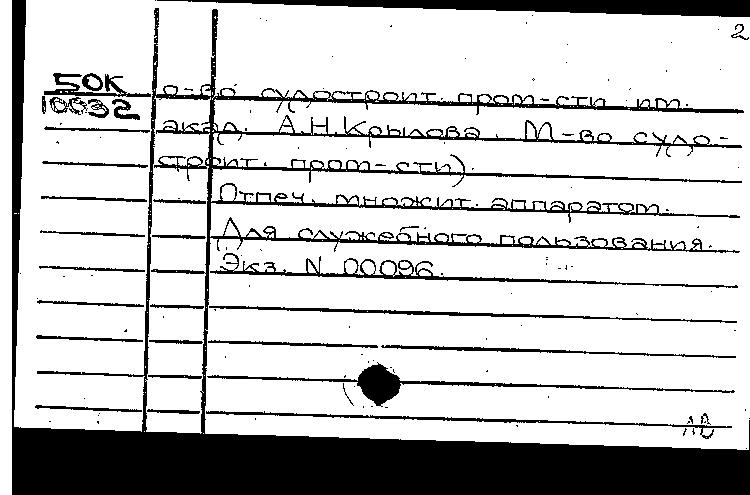 2
50К
10032
о-во судостроит. пром-сти им.
акад. А.Н.Крылова. М-во судо-
строит. пром-сти)
Отпеч. множит. аппаратом.
Для служебного пользования.
Экз. N 00096.